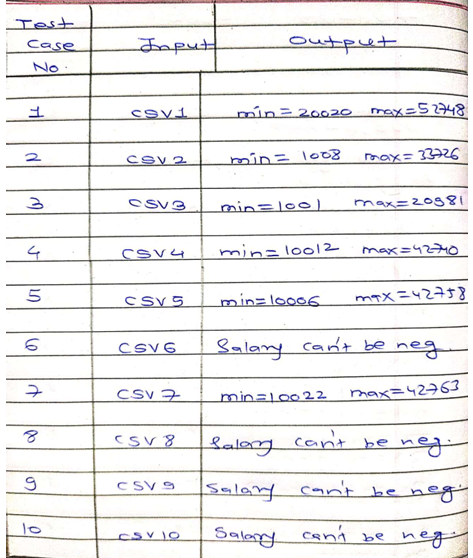 Test
Case Input Output
No.
1 CSV1 min=20020 max=52748
2 CSV2 min=1008 max=33726
3 CSV3 min=1001 max=20981
4 CSV4 min=10012 max=42740
5 CSV5 min=10006 max=42758
6 CSV6 Salary can't be neg.
7 CSV7 min=10022 max=42763
8 CSV8 Salary can't be neg.
9 CSV9 Salary can't be neg.
10 CSV10 Salary can't be neg.